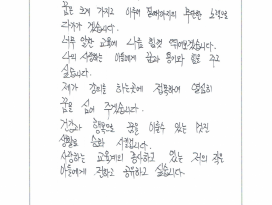 꿈은 크게 가지고 이루어 질때까지의 부단한 노력으로
다가가 겠습니다.
너무 얇한 교육에 나를 힘껏 뛰어보겠습니다.
나의 사랑하는 아들에게 꿈과 용기와 힘을 주고
싶습니다.
제가 강의를 하는곳에 집중하여 열심히
꿈을 심어 주겠습니다.
건강과 행복으로 꿈을 이룰수 있는 멋진
생활로 승화 시킵니다.
사랑하는 교육계의 종사하고 있는 저의 작은
아들에게 전하고 공유하고 싶습니다.